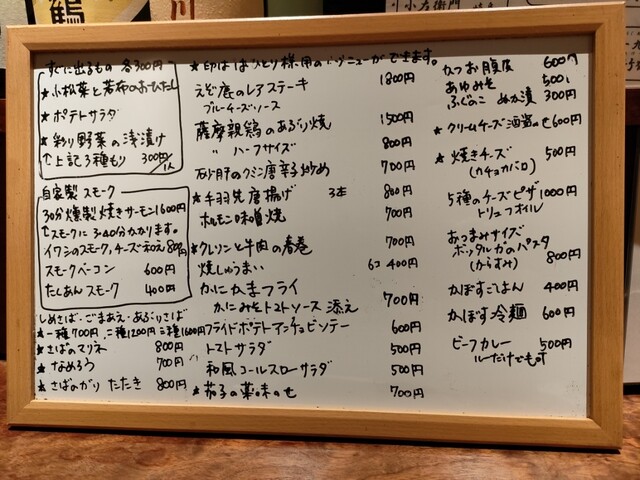 鶴
川
小左衛門
すぐに出るもの 各300円
★小松菜と若布のおひたし
★ポテトサラダ
★彩り野菜の浅漬け
↑上記3種もり 300円/1人
自家製 スモーク
30分燻製 焼きサーモン1600円
↑スモークに30~40分かかります。
イワシのスモーク、チーズ和え 800円
スモークベーコン 600円
たくあんスモーク 400円
しめさば・ごまあえ・あぶりさば
★一種700円、二種1200円 三種1600円
★さばのマリネ 800円
★なめろう 700円
★さばのガリ たたき 800円
★印はおひとり様用のメニューができます。
えぞ鹿のレアステーキ 1800円
ブルーチーズソース
薩摩親鶏のあぶり焼 1500円
〃 ハーフサイズ 800円
砂肝のクミン唐辛子炒め 700円
★手羽先唐揚げ 3本 800円
ホルモン味噌焼 700円
★クレソンと牛肉の春巻 700円
焼しゅうまい 6コ 400円
かにかまフライ
かにみそトマトソース 添え 700円
フライドポテトアンチョビソテー 600円
トマトサラダ 500円
和風コールスローサラダ 500円
★茄子の薬味のせ 700円
かつお腹皮 600円
あゆみそ 500〃
ふぐのこ ぬか漬 300円
★クリームチーズ酒盗のせ600円
★焼きチーズ 500円
(カチョカバロ)
5種のチーズピザ 1000円
トリュフオイル
おつまみサイズ
ボッタルガのパスタ
(からすみ) 800円
かぼすごはん 400円
かぼす冷麺 600円
ビーフカレー 500円
ルーだけでも可